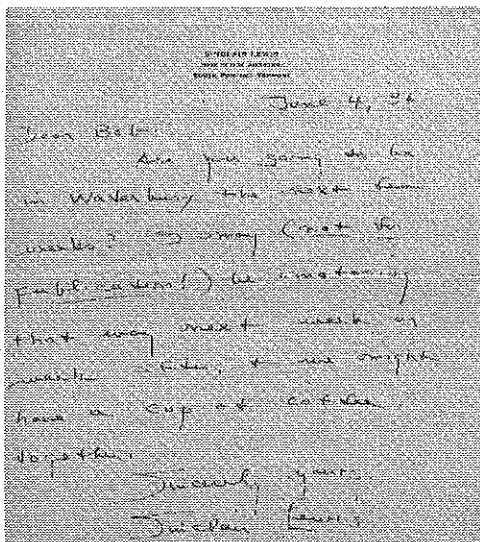 SINCLAIR LEWIS
SOUTH POMFRET, VERMONT
June 4, 36
Dear Bob:
Are you going to be
in Waterbury the next few
weeks? I may (not for
publication!) be motoring
that way next week or
week after, & we might
have a cup of coffee
together.
Sincerely yours,
Sinclair Lewis